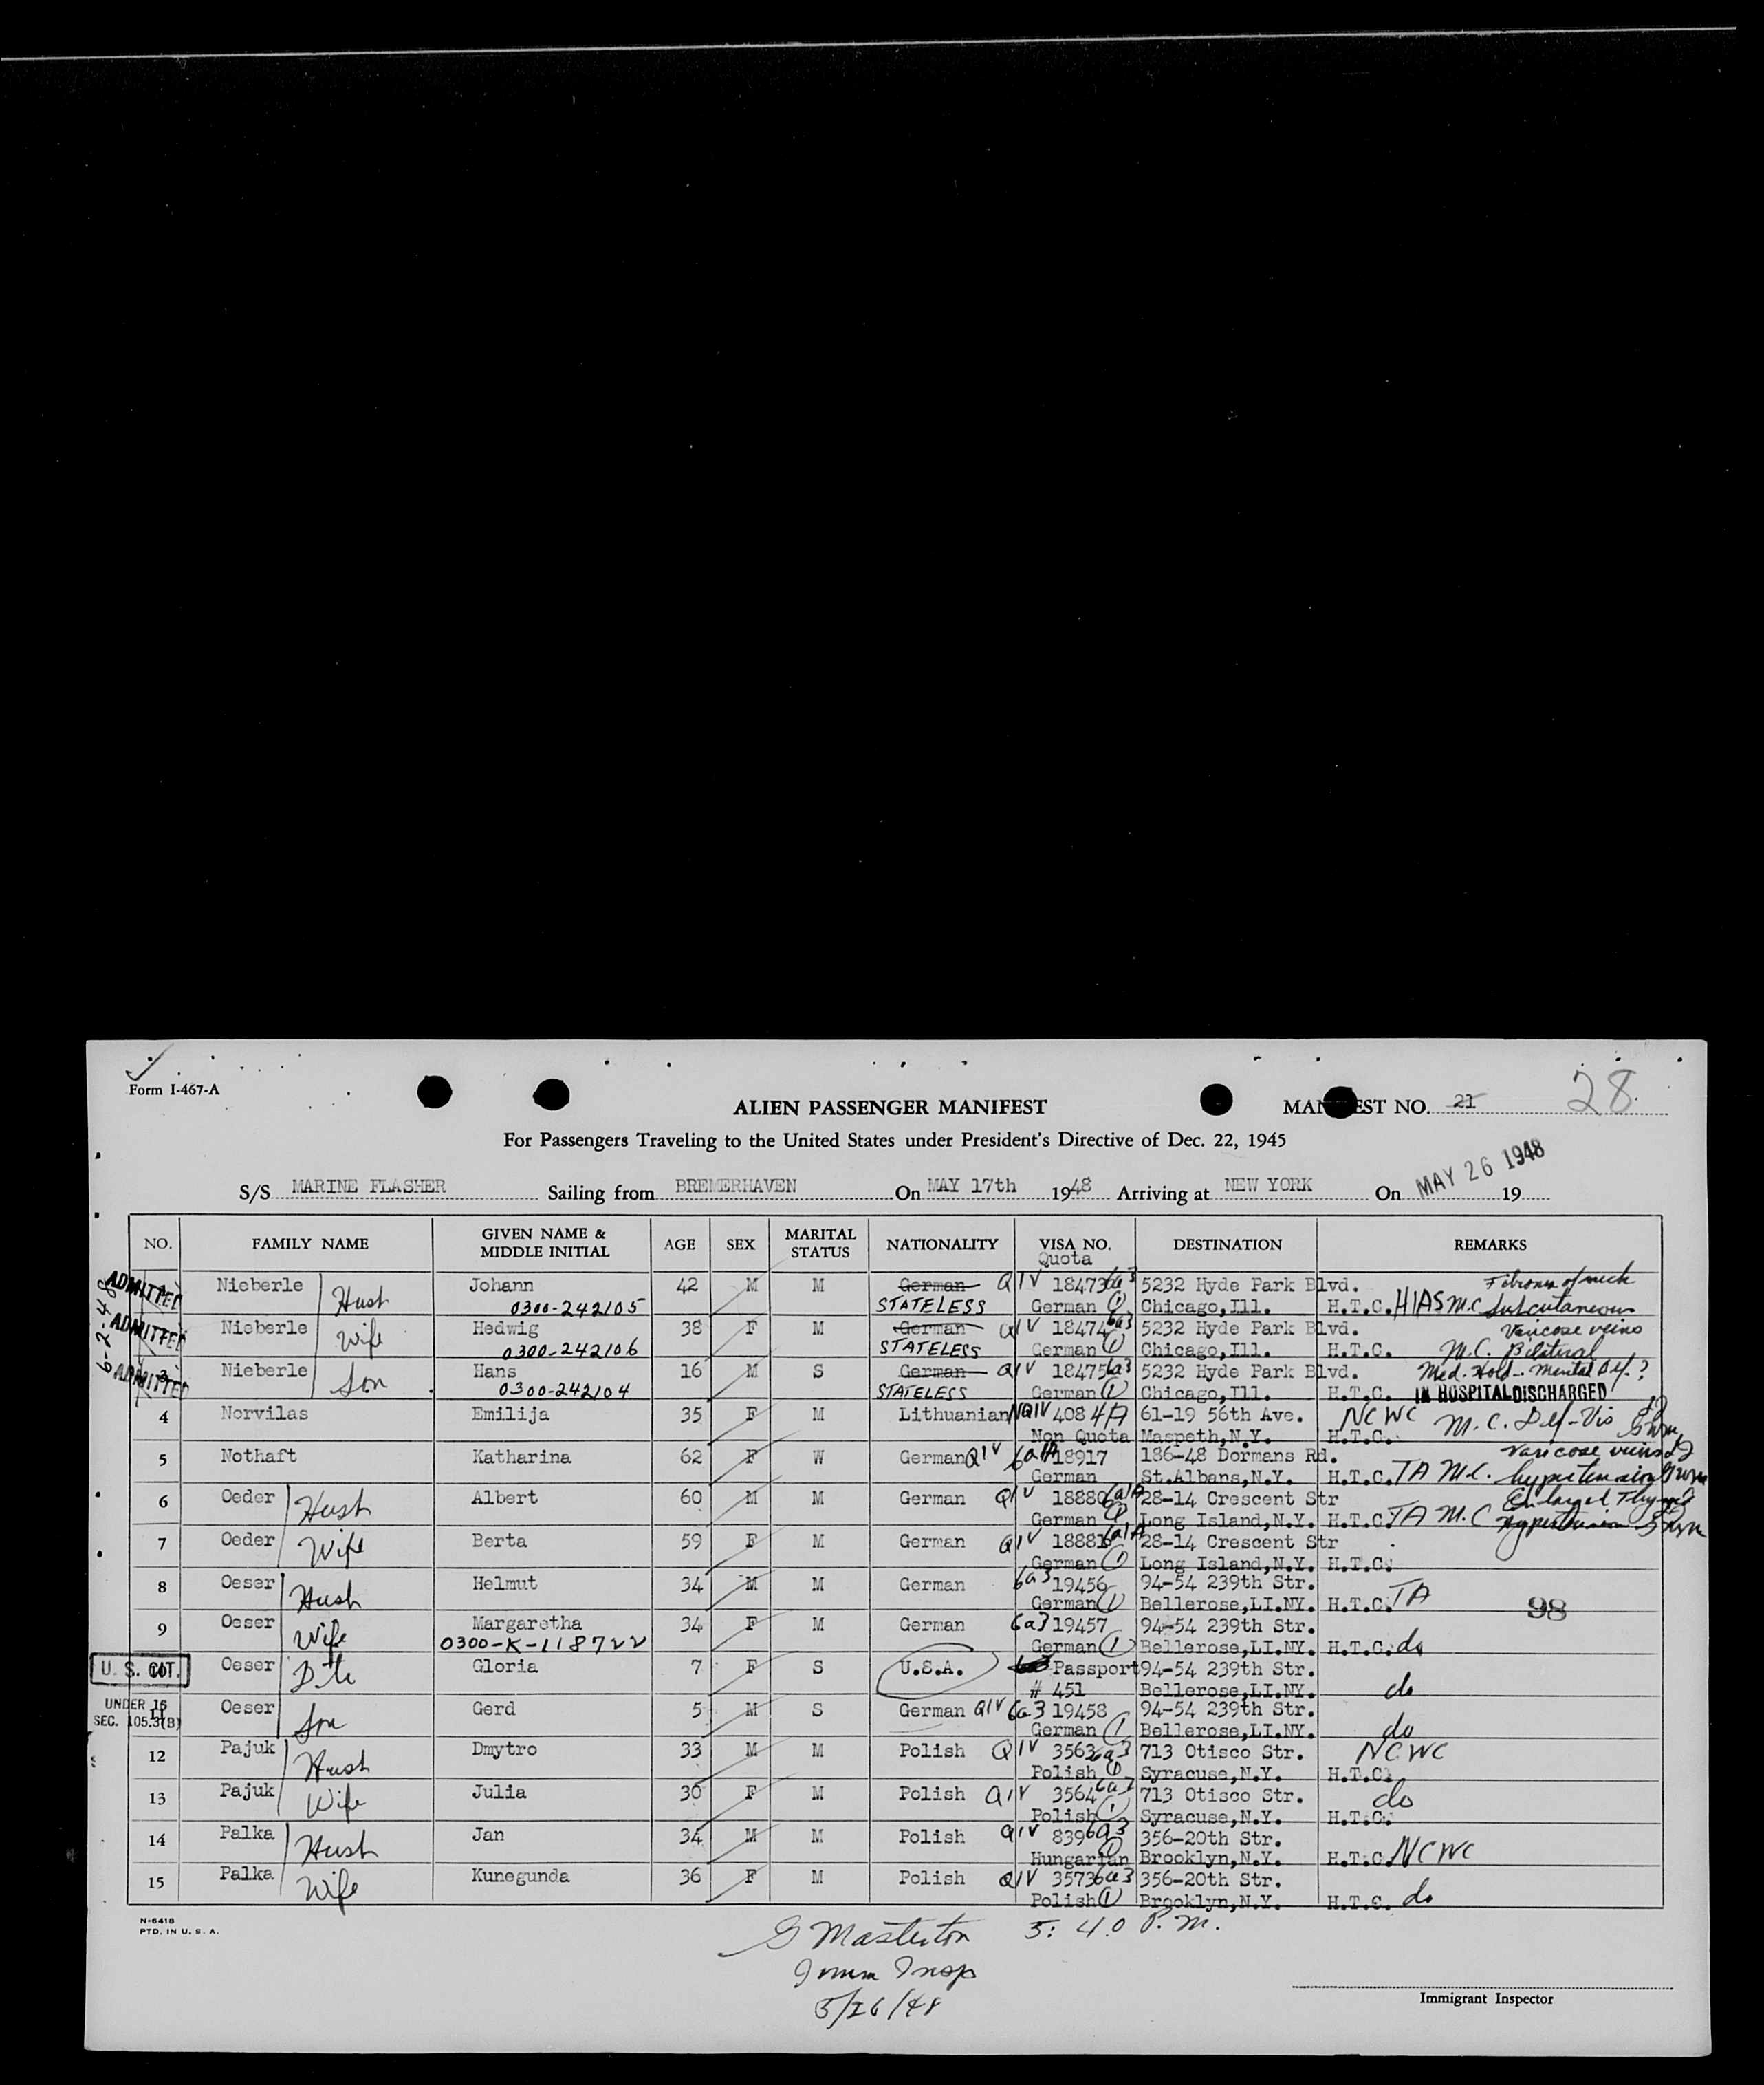 Form I-467-A
ALIEN PASSENGER MANIFEST
MANIFEST NO. 21 28
For Passengers Traveling to the United States under President's Directive of Dec. 22, 1945
S/S MARINE FLASHER Sailing from BREMERHAVEN On MAY 17th 1948 Arriving at NEW YORK On MAY 26 1948 19
NO. FAMILY NAME GIVEN NAME & MIDDLE INITIAL AGE SEX MARITAL STATUS NATIONALITY VISA NO. Quota DESTINATION REMARKS
6-2-48
ADMITTED Nieberle Husb Johann 42 M M German QIV 18473 6a3 5232 Hyde Park Blvd. Fibroma of neck
0300-242105 STATELESS German (1) Chicago,Ill. H.T.C. HIAS M.C. Subcutaneous
ADMITTED Nieberle Wife Hedwig 38 F M German QIV 18474 6a3 5232 Hyde Park Blvd. Varicose veins
0300-242106 STATELESS German (1) Chicago,Ill. H.T.C. M.C. Bilateral
ADMITTED 3 Nieberle Son Hans 16 M S German QIV 18475 6a3 5232 Hyde Park Blvd. Med. Hold. Mental Def.?
0300-242104 STATELESS German (1) Chicago,Ill. H.T.C. IN HOSPITAL DISCHARGED
4 Norvilas Emilija 35 F M Lithuanian NQIV 4084A 61-19 56th Ave. NCWC M.C. Def-Vis
Non Quota Maspeth,N.Y. H.T.C.
5 Nothaft Katharina 62 F W German QIV 6a1A 18917 186-48 Dormans Rd. Varicose veins
German St.Albans,N.Y. H.T.C. TA M.C. hypertension
6 Oeder Husb Albert 60 M M German QIV 18880 6a1A 28-14 Crescent Str Enlarged Thyroid
German (1) Long Island,N.Y. H.T.C. TA M.C. hypertension
7 Oeder Wife Berta 59 F M German QIV 18881 6a1A 28-14 Crescent Str
German (1) Long Island,N.Y. H.T.C.
8 Oeser Husb Helmut 34 M M German 6a3 19456 94-54 239th Str.
German (1) Bellerose,LI.NY. H.T.C. TA 98
9 Oeser Wife Margaretha 34 F M German 6a3 19457 94-54 239th Str.
0300-K-118722 German (1) Bellerose,LI.NY. H.T.C. do
U. S. CIT. 10 Oeser Dtr Gloria 7 F S U.S.A. 6a3 Passport 94-54 239th Str.
# 451 Bellerose,LI.NY. do
UNDER 16 11 Oeser Son Gerd 5 M S German QIV 6a3 19458 94-54 239th Str.
SEC. 105.3(B) German (1) Bellerose,LI.NY. do
12 Pajuk Husb Dmytro 33 M M Polish QIV 3563 6a3 713 Otisco Str. NCWC
Polish (1) Syracuse,N.Y. H.T.C.
13 Pajuk Wife Julia 30 F M Polish QIV 3564 6a3 713 Otisco Str. do
Polish (1) Syracuse,N.Y. H.T.C.
14 Palka Husb Jan 34 M M Polish QIV 839 6a3 356-20th Str.
Hungarian (1) Brooklyn,N.Y. H.T.C. NCWC
15 Palka Wife Kunegunda 36 F M Polish QIV 3573 6a3 356-20th Str.
Polish (1) Brooklyn,N.Y. H.T.C. do
N-6418
PTD. IN U. S. A.
G Masterton 5:40 P.M.
Imm Insp
5/26/48
Immigrant Inspector